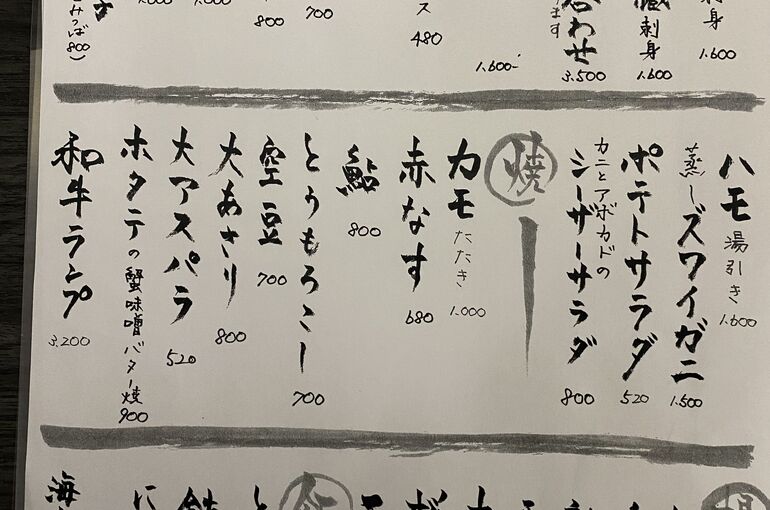 刺身
1.600
刺身
1.600
合わせ
3.500
1.600-
ス
480
700
800
みつば800)
ハモ湯引き
1.600
蒸しズワイガニ
1.500
ポテトサラダ
520
カニとアボカドの
シーザーサラダ
800
焼
カモたたき
1.000
赤なす
680
鮎
800
とうもろこし
700
空豆
700
大あさり
800
大アスパラ
520
ホタテの蟹味噌バター焼
900
和牛ランプ
3.200
と
に
海